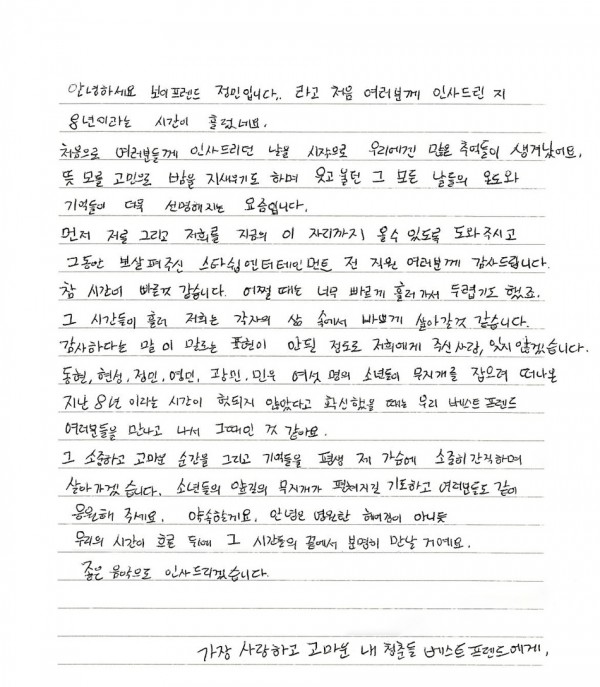 안녕하세요 보이프렌드 정민입니다.. 라고 처음 여러분께 인사드린 지
8년이라는 시간이 흘렀네요.
처음으로 여러분들께 인사드리던 날을 시작으로 우리에겐 많은 추억들이 생겨났어요.
뜻 모를 고민으로 밤을 지새우기도 하며 웃고 울던 그 모든 날들의 온도와
기억들이 더욱 선명해지는 요즘입니다.
먼저 저를 그리고 저희를 지금의 이 자리까지 올수 있도록 도와주시고
그동안 보살펴주신 스타쉽엔터테인먼트 전 직원 여러분께 감사드립니다.
참 시간이 빠른것 같습니다. 어쩔 때는 너무 빠르게 흘러가서 두렵기도 했죠.
그 시간들이 흘러 저희는 각자의 삶 속에서 바쁘게 살아갈것 같습니다.
감사하다는 말이 말로는 표현이 안될 정도로 저희에게 주신 사랑, 잊지 않겠습니다.
동현, 현성, 정민, 영민, 광민, 민우 여섯 명의 소년들이 무지개를 잡으려 떠나온
지난 8년 이라는 시간이 헛되지 않았다고 확신했을 때는 우리 베스트프렌드
여러분들을 만나고 나서 그때인 것 같아요.
그 소중하고 고마운 순간을 그리고 기억들을 평생 제 가슴에 소중히 간직하며
살아가겠습니다. 소년들의 앞길의 무지개가 펼쳐지길 기도하고 여러분들도 같이
응원해 주세요. 약속할게요. 안녕은 영원한 헤어짐이 아니듯
우리의 시간이 흐른 뒤에 그 시간들의 끝에서 분명히 만날 거예요.
좋은 음악으로 인사드리겠습니다.
가장 사랑하고 고마운 내 청춘들 베스트프렌드에게.